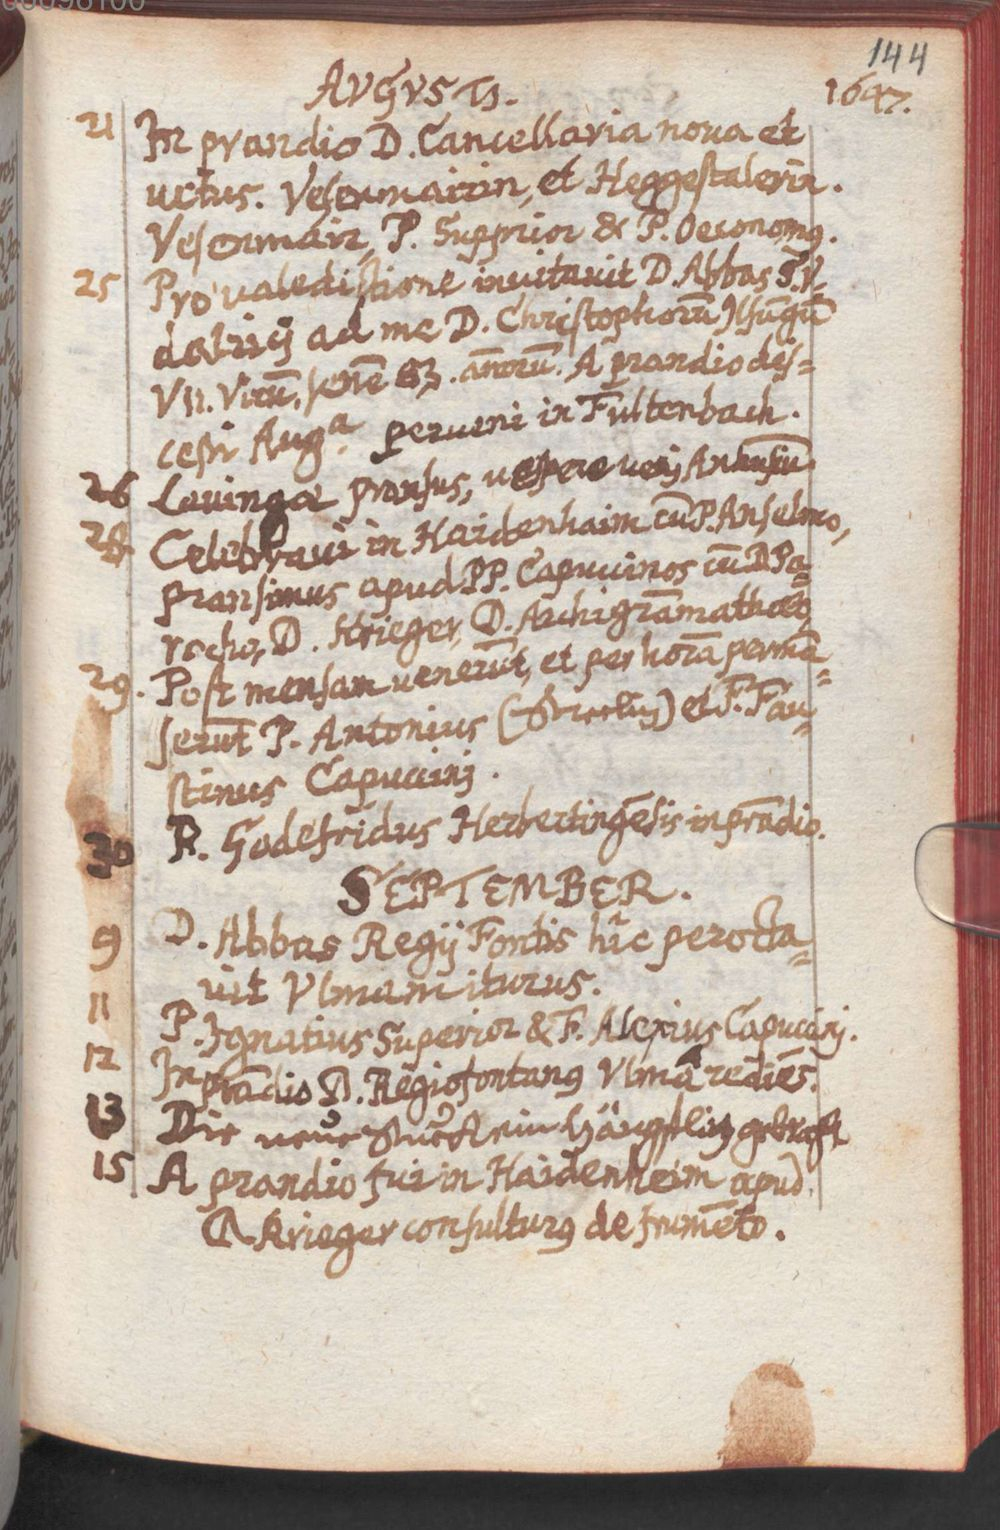 144
AVGVSTJ.
1647.
21 In prandio D. Cancellaria noua et
uetus. Vesenmairin, et Heggestalerin.
Vesenmair, P. Supprior & P. Oeconomꝯ.
25 Pro ualedictione inuitauit D. Abbas S. V-
dalrici ad me D. Christophorū Ilsūgū
VII. Virū, senē 83. annorū. A prandio dis=
cessi Augᵃ perueni in Fultenbach.
26 Lauingæ pransus, uespere ueni
28 Celebraui in Haidenhaim cū P. Anselmo,
pransimus apud PP. Capucinos cū D Pa=
rocho, D. Krieger, D. Archigrāmathæo,
29. Post mensam uenerūt, et per horā permā=
serūt P. Antonius et F. Fau=
stinus Capucini.
30 R. Godefridus Herbertingēsis in prādio.
SEPTEMBER.
9 D. Abbas Regij Fontis hic pernocta=
uit Vlmam iturus.
11 P. Ignatius Superior & F. Alexius Capucini.
12 In prādio D. Regiofontanꝯ Vlmâ rediēs.
13 Die neue
15 A prandio fui in Haidenheim apud
D. Krieger consulturꝯ de frumēto.